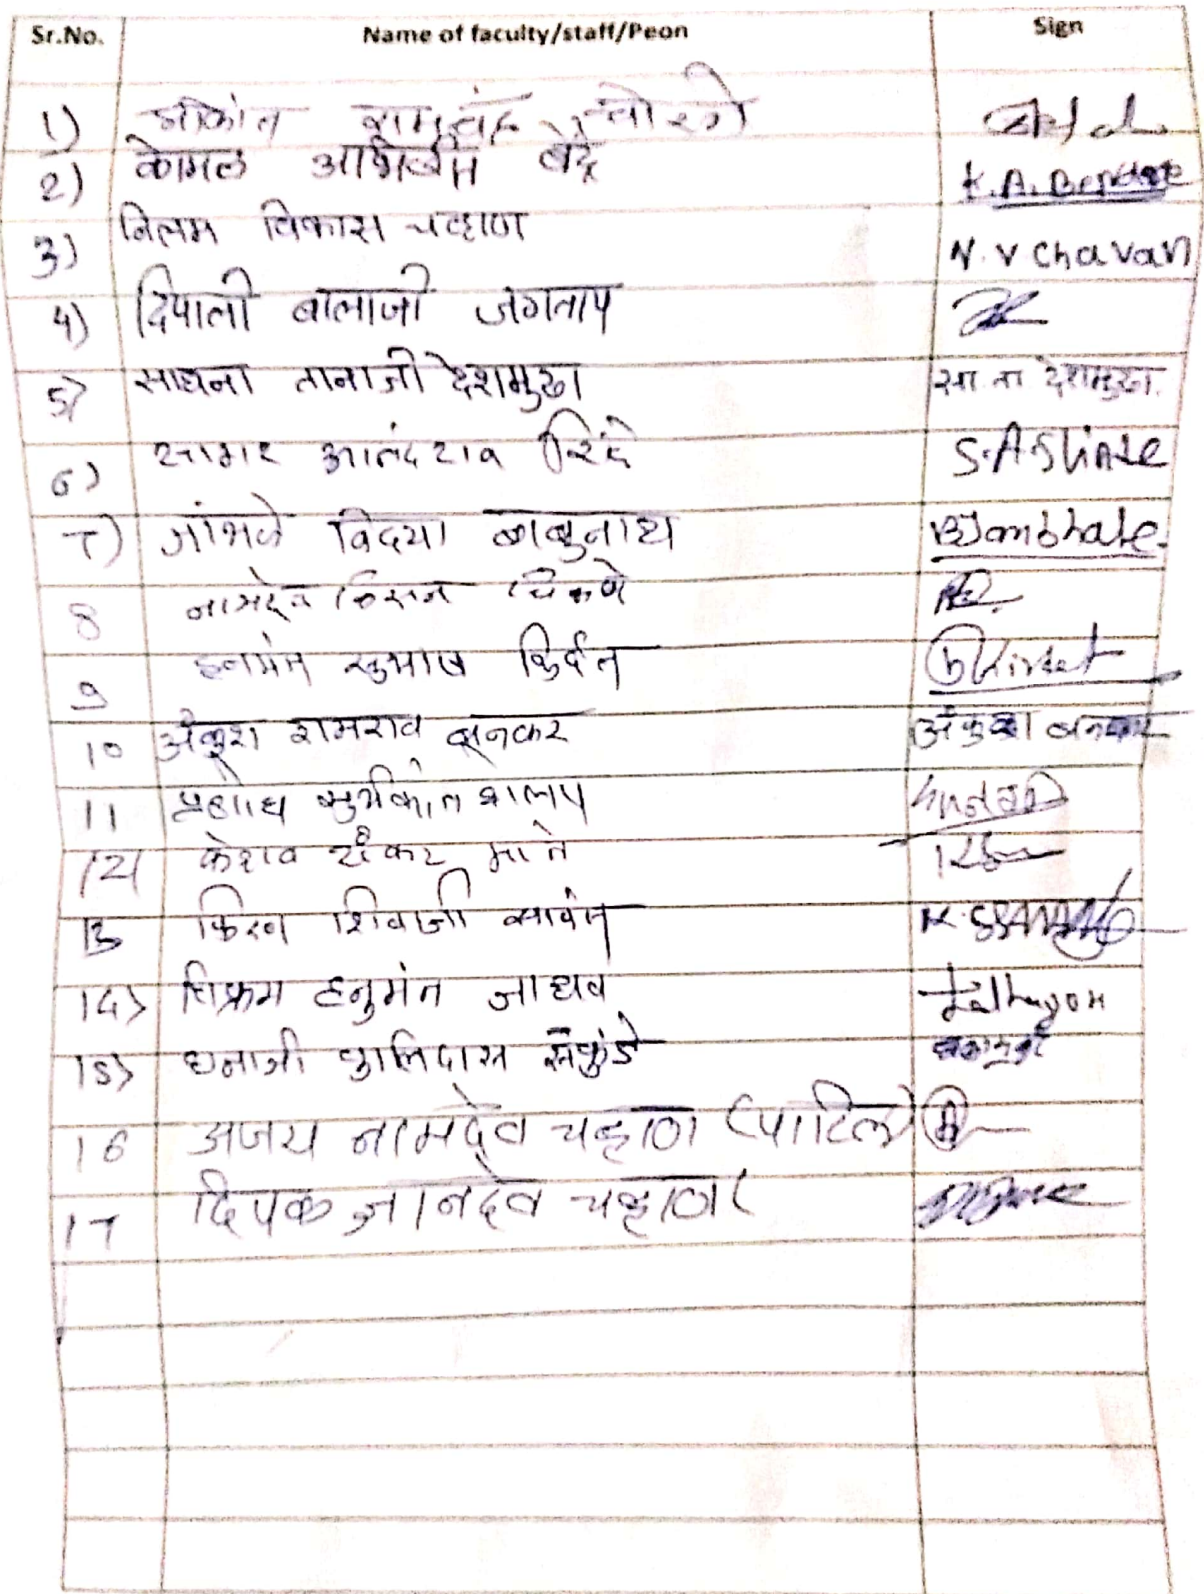 Sr.No. Name of faculty/staff/Peon Sign
1)
2) कोमल बेंद्रे K.A. Bendre
3) निलम विकास चव्हाण N.V Chavan
4) दिपाली बालाजी जगताप
5) साधना तानाजी देशमुख सा. ता देशमुख.
6) सागर आनंदराव शिंदे S.A.Shinde
7) जांभळे विद्या बाबुनाथ
8 नामदेव किसन चिकणे
9 हनमंत सुभाष किर्दत
10 अंकुश शामराव बनकर अंकुश बनकर
11
12 केशव शंकर माने
13 किरण शिवाजी सावंत
14) विक्रम हनुमंत जाधव
15) धनाजी कालिदास
16 अजय नामदेव चव्हाण (पाटिल)
17 दिपक ज्ञानदेव चव्हाण